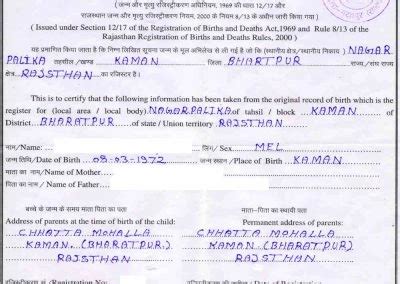 ( जन्म और मृत्यु रजिस्ट्रीकरण अधिनियम, 1969 की धारा 12/17 और
राजस्थान जन्म और मृत्यु रजिस्ट्रीकरण नियम, 2000 के नियम 8/13 के अधीन जारी किया गया )
( Issued under Section 12/17 of the Registration of Births and Deaths Act,1969 and Rule 8/13 of the
Rajasthan Registration of Births and Deaths Rules, 2000 )
यह प्रमाणित किया जाता है कि निम्न लिखित सूचना जन्म के मूल अभिलेख से ली गई है जो कि (स्थानीय क्षेत्र/स्थानीय निकाय ) NAGAR
PALIKA तहसील/खण्ड KAMAN जिला BHARTPUR राज्य/संघ राज्य
क्षेत्र RAJSTHAN का रजिस्टर है।
This is to certify that the following information has been taken from the original record of birth which is the
register for (local area / local body) NAGARPALIKA of tahsil / block KAMAN of
District BHARATPUR of state / Union territory RAJSTHAN
नाम/Name: लिंग/Sex MEL
जन्म तिथि/Date of Birth 08-03-1972 जन्म स्थान /Place of Birth KAMAN
माता का नाम / Name of Mother
पिता का नाम / Name of Father
बच्चे के जन्म के समय माता पिता का पता माता-पिता का स्थायी पता
Address of parents at the time of birth of the child: Permanent address of parents:
CHHATTA MOHALLA CHHATTA MOHALLA
KAMAN (BHARATPUR) KAMAN (BHARATPUR)
RAJSTHAN RAJSTHAN
रजिस्ट्रीकरण सं /Registration No रजिस्ट्रीकरण की तारीख / Date of Registration